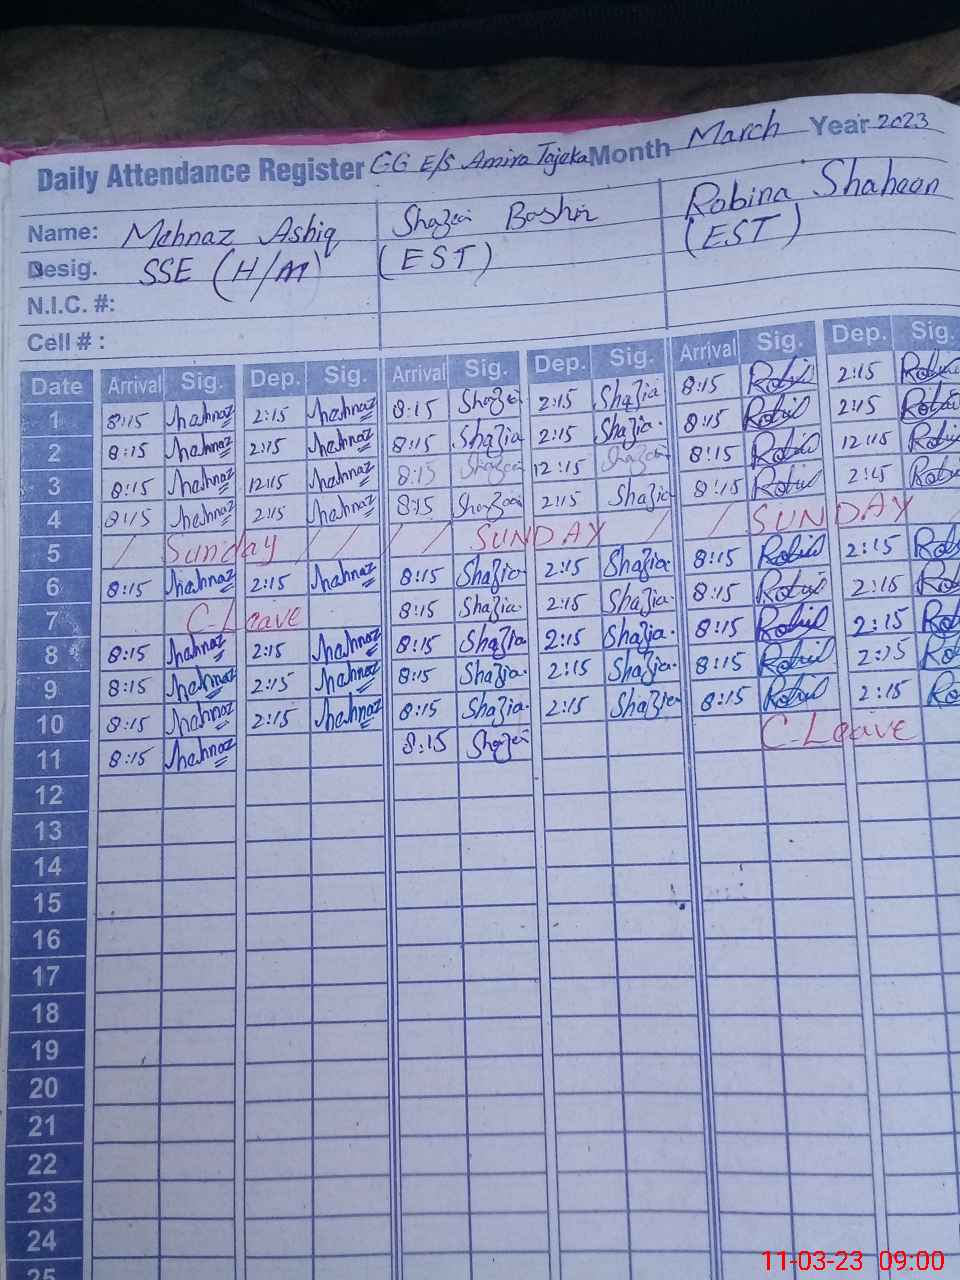 Daily Attendance Register GG E/S Amira Tajeka Month March Year 2023
Name: Mehnaz Ashiq Shazia Bashir Robina Shaheen
Desig. SSE (H/M) (EST) (EST)
N.I.C. #:
Cell # :
Date Arrival Sig. Dep. Sig. Arrival Sig. Dep. Sig. Arrival Sig. Dep. Sig.
1 8:15 Mehnaz 2:15 Mehnaz 8:15 Shazia 2:15 Shazia 8:15 2:15
2 8:15 Mehnaz 2:15 Mehnaz 8:15 Shazia 2:15 Shazia. 8:15 2:15
3 8:15 Mehnaz 12:15 Mehnaz 8:15 Shazia 12:15 Shazia 8:15 12:15
4 8:15 Mehnaz 2:15 Mehnaz 8:15 Shazia 2:15 Shazia 8:15 2:15
5 / Sunday / / / SUNDAY / / SUNDAY /
6 8:15 Mehnaz 2:15 Mehnaz 8:15 Shazia 2:15 Shazia 8:15 2:15
7 C-Leave 8:15 Shazia 2:15 Shazia. 8:15 2:15
8 8:15 Mehnaz 2:15 Mehnaz 8:15 Shazia 2:15 Shazia. 8:15 2:15
9 8:15 Mehnaz 2:15 Mehnaz 8:15 Shazia. 2:15 Shazia. 8:15 2:15
10 8:15 Mehnaz 2:15 Mehnaz 8:15 Shazia. 2:15 Shazia 8:15 2:15
11 8:15 Mehnaz 8:15 Shazia C-Leave
12
13
14
15
16
17
18
19
20
21
22
23
24
25
11-03-23 09:00